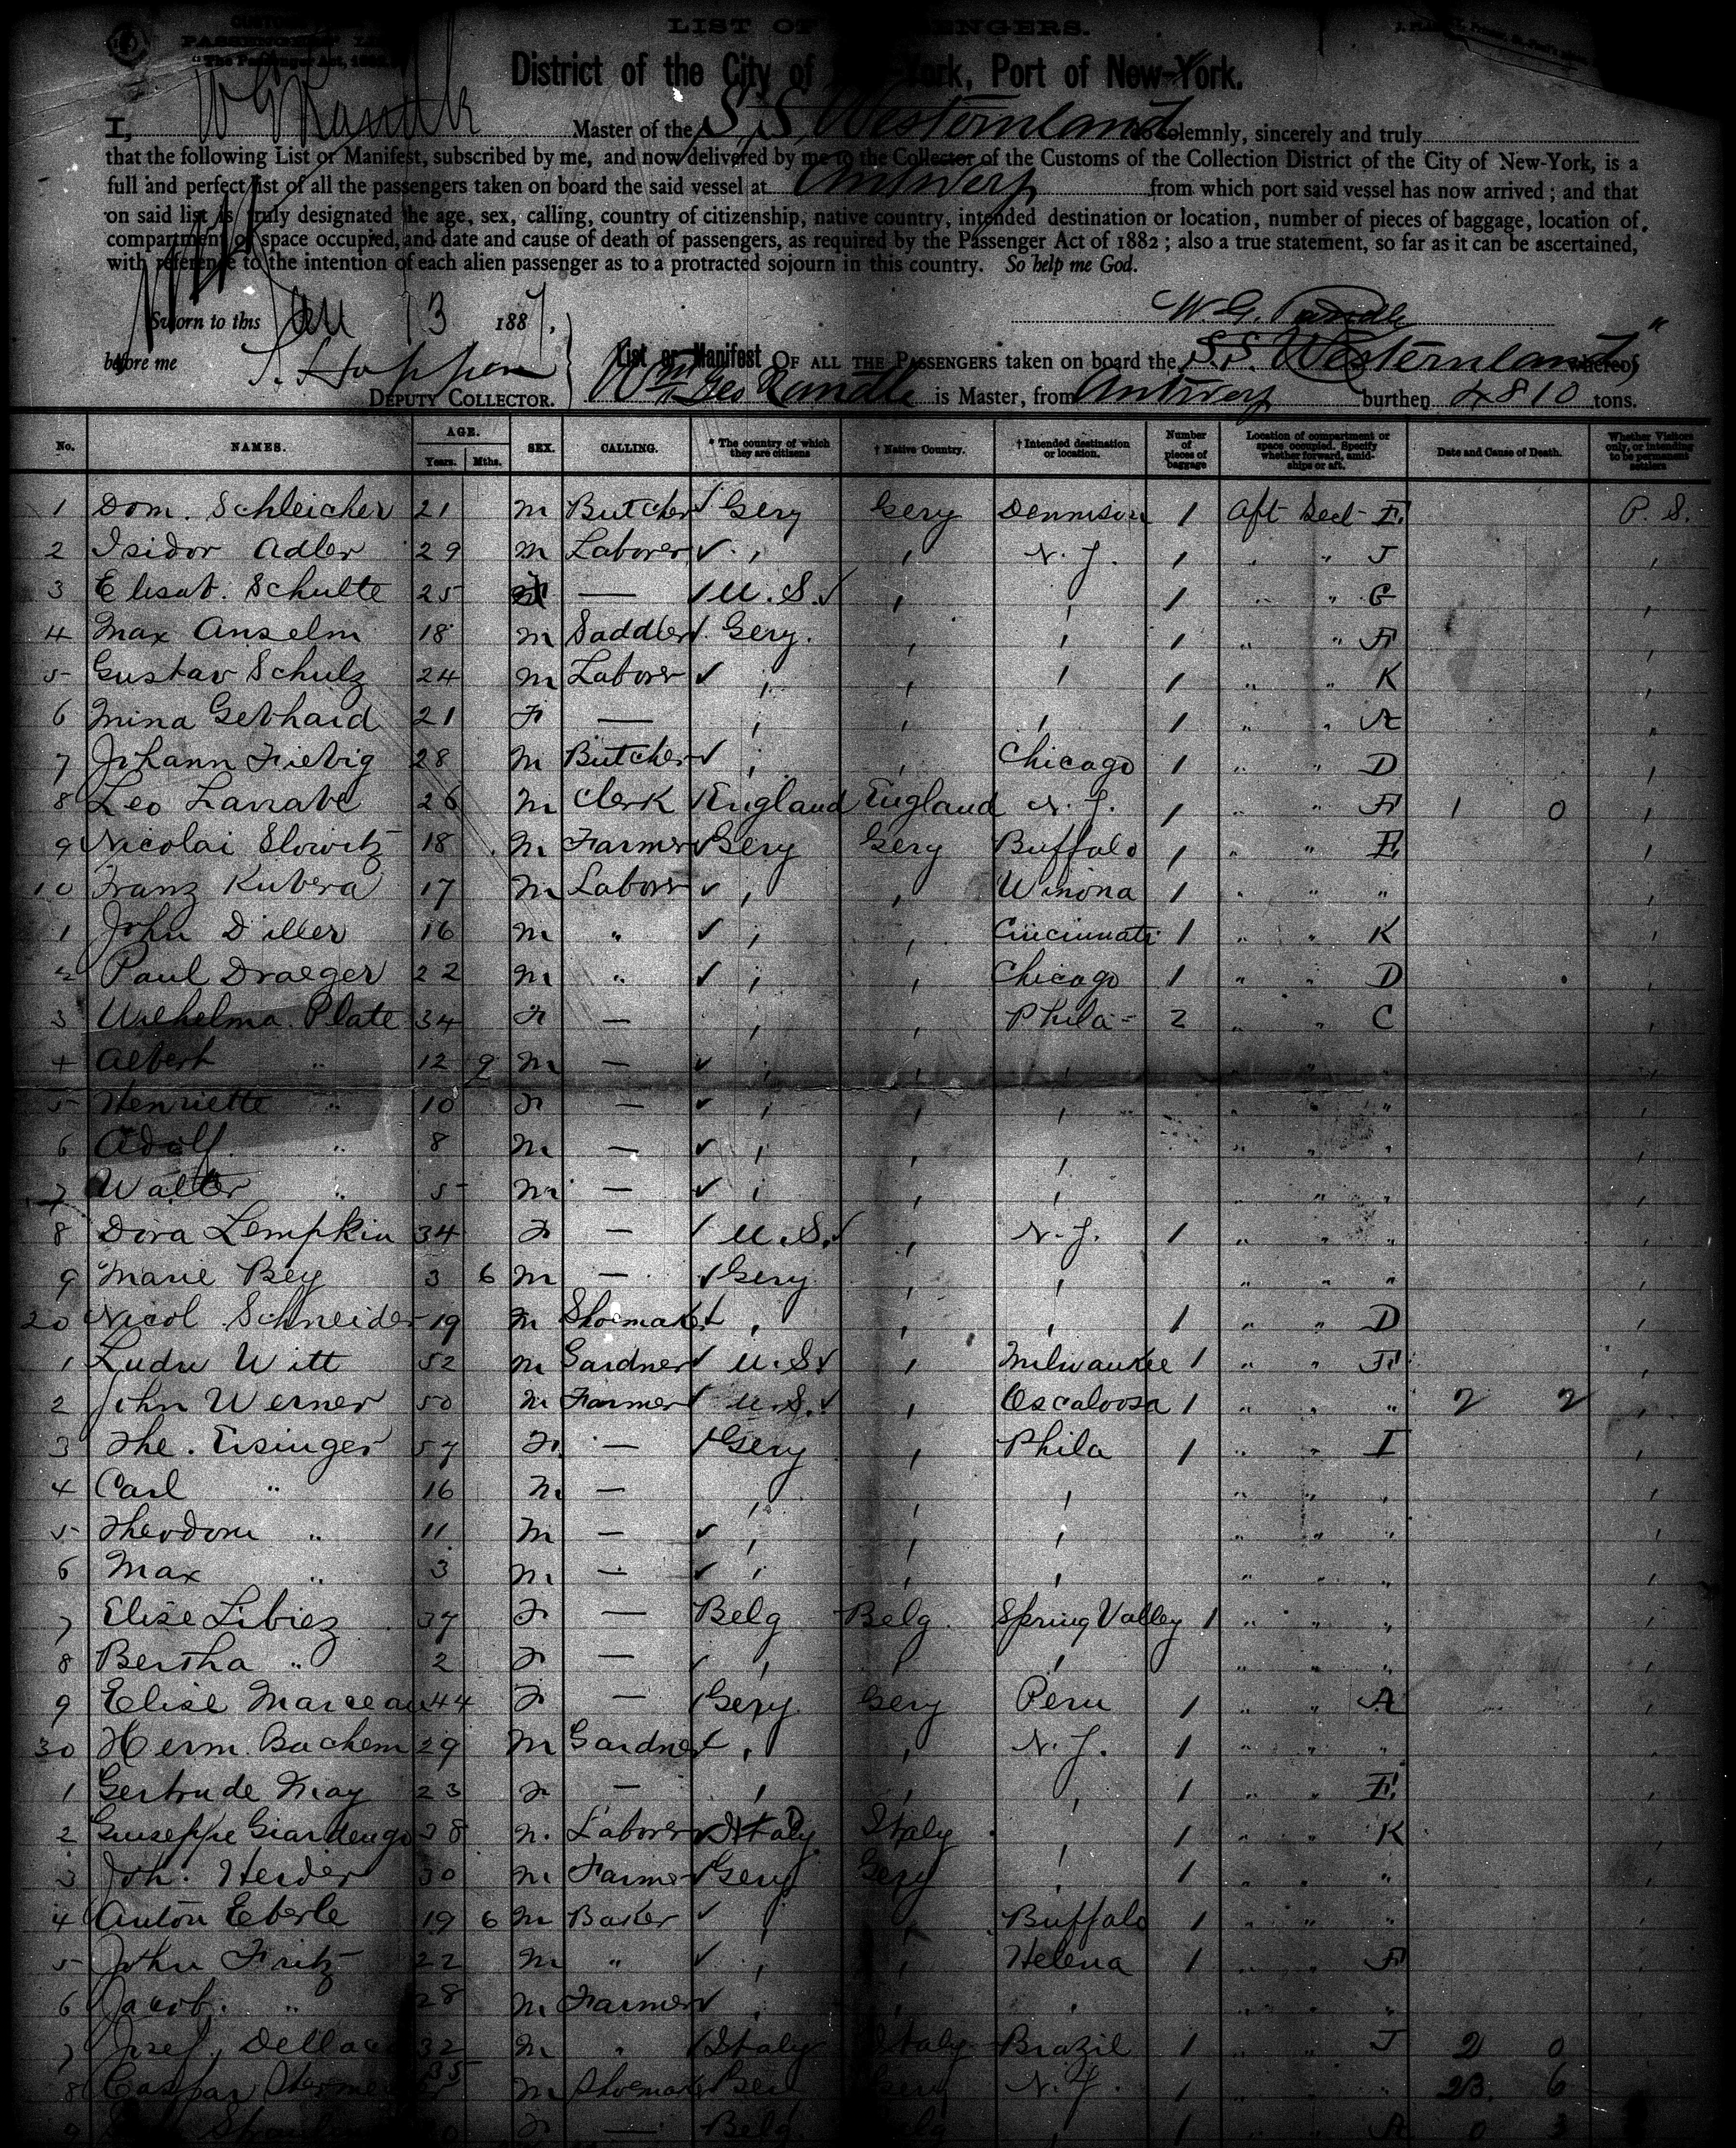 CUSTOMS
PASSENGER LIST
"The Passenger Act, 1882
LIST OF PASSENGERS.
District of the City of New-York, Port of New-York.
I, W G Randle Master of the S.S. Westernland do solemnly, sincerely and truly
that the following List or Manifest, subscribed by me, and now delivered by me to the Collector of the Customs of the Collection District of the City of New-York, is a
full and perfect list of all the passengers taken on board the said vessel at Antwerp from which port said vessel has now arrived; and that
on said list is truly designated the age, sex, calling, country of citizenship, native country, intended destination or location, number of pieces of baggage, location of
compartment or space occupied, and date and cause of death of passengers, as required by the Passenger Act of 1882; also a true statement, so far as it can be ascertained,
with reference to the intention of each alien passenger as to a protracted sojourn in this country. So help me God.
Sworn to this Jan 13 1887. W. G. Randle
before me
DEPUTY COLLECTOR.
List or Manifest OF ALL THE PASSENGERS taken on board the S.S. Westernland" whereof
Wm Geo Randle is Master, from Antwerp burthen 4810 tons.
No. NAMES. AGE. Years. Mths. SEX. CALLING. * The country of which they are citizens † Native Country. † Intended destination or location. Number of pieces of baggage Location of compartment or space occupied. Specify whether forward, amidships or aft. Date and Cause of Death. Whether Visitors only, or intending to be permanent settlers
1 Dom. Schleicher 21 m Butcher Gery Gery Dennison 1 Aft Sect E P. S.
2 Isidor Adler 29 m Laborer " " N. Y. 1 " " J "
3 Elisab. Schulte 25 — U.S. " " 1 " " G "
4 Max Anselm 18 m Saddler Gery. " " 1 " " F "
5 Gustav Schulz 24 m Laborer " " " 1 " " K "
6 Mina Gebhard 21 F — " " " 1 " " A "
7 Johann Fiebig 28 m Butcher " " Chicago 1 " " D "
8 Leo 26 m Clerk England England N. Y. 1 " " F 1 0 "
9 Nicolai Slowitz 18 m Farmer Gery Gery Buffalo 1 " " E "
10 Franz Kubera 17 m Laborer " " Winona 1 " " " "
1 John Diller 16 m " " " Cincinnati 1 " " K "
2 Paul Draeger 22 m " " " Chicago 1 " " D "
3 Wilhelma Plate 34 F — " " Phila 2 " " C "
4 Albert " 12 9 m — " " " " " "
5 Henriette " 10 F — " " " " " " "
6 Adolf " 8 m — " " " " " " "
7 Walter " 5 m — " " " " " " "
8 Dora Lempkin 34 F — U.S. " N. Y. 1 " " " "
9 Marie Bey 3 6 m — Gery " " " " " "
20 Nicol Schneider 19 m Shoemaker " " " 1 " " D "
1 Ludw Witt 52 m Gardner U.S. " Milwaukee 1 " " F "
2 John Werner 50 m Farmer U.S. " Oscaloosa 1 " " " 2 2 "
3 The. Eisinger 57 F — Gery " Phila 1 " " I "
4 Carl " 16 m — " " " " " " "
5 Theodore " 11 m — " " " " " " "
6 Max " 3 m — " " " " " " "
7 Elise Libiez 37 F — Belg Belg. Spring Valley 1 " " " "
8 Bertha " 2 F — " " " " " " "
9 Elise Marceau 44 F — Gery Gery Peru 1 " " A "
30 Herm. Bachem 29 m Gardner " " N. Y. 1 " " " "
1 Gertrude May 23 F — " " " 1 " " E "
2 Giuseppe Giardengo 38 m. Laborer Italy Italy " 1 " " K "
3 Joh. Herder 30 m Farmer Gery Gery " 1 " " " "
4 Anton Eberle 19 6 m Baker " " Buffalo 1 " " " "
5 John Fritz 22 m " " " Helena 1 " " F "
6 Jacob " 28 m Farmer " " " " " " "
7 Josef 32 m " Italy Italy Brazil 1 " " J 2 0 "
8 Caspar 35 m Shoemaker Gery N. Y. 1 " " " 23. 6
9 F — Belg. Belg " 1 A 0 3